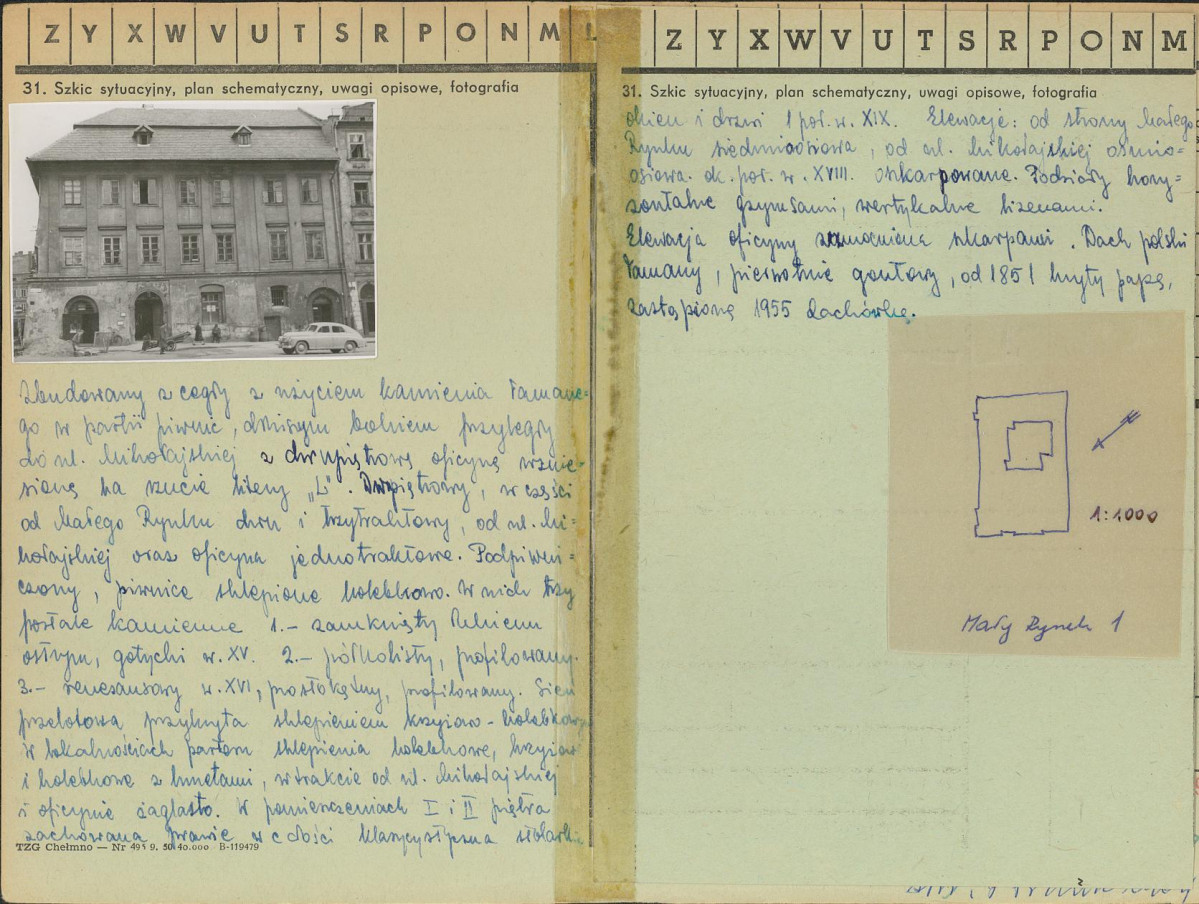 Z Y X W V U T S R P O N M L
31. Szkic sytuacyjny, plan schematyczny, uwagi opisowe, fotografia
Zbudowany z cegły z użyciem kamienia łamane-
go w partii piwnic, dłuższym bokiem przyległy
do ul. Mikołajskiej z dwupiętrową oficyną wznie-
sioną na rzucie litery „L". Dwupiętrowy, w części
od Małego Rynku dwu i trzytraktowy, od ul. Mi-
kołajskiej oraz oficyna jednotraktowe. Podpiwni-
czony, piwnice sklepione kolebkowo. W nich trzy
portale kamienne 1.- zamknięty łukiem
ostrym, gotycki w. XV. 2.- półkolisty, profilowany.
3.- renesansowy w. XVI, prostokątny, profilowany. Sień
przelotowa przykryta sklepieniem krzyżowo-kolebkowym
w lokalnościach parteru sklepienia kolebkowe, krzyżowe
i kolebkowe z lunetami, w trakcie od ul. Mikołajskiej
i oficynie żaglasto. W pomieszczeniach I i II piętra
zachowana prawie w całości klasycystyczna stolarka
TZG Chełmno — Nr 495 9. 50 40.000 B-119479
Z Y X W V U T S R P O N M
31. Szkic sytuacyjny, plan schematyczny, uwagi opisowe, fotografia
okien i drzwi 1 poł. w. XIX. Elewacje: od strony Małego
Rynku siedmioosiowa, od ul. Mikołajskiej ośmio-
osiowa. ok. poł. w. XVIII. oskarpowane. Podziały hory-
zontalne gzymsami, wertykalne lizenami.
Elewacja oficyny wzmocniona skarpami. Dach polski
łamany, pierwotnie gontowy, od 1851 kryty papą,
zastąpioną 1955 dachówką.
1:1000
Mały Rynek 1